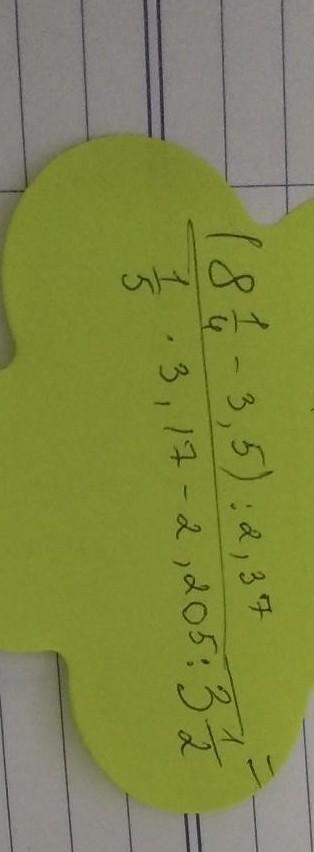 (8 1/4 - 3,5) : 2,37 =
1/5 · 3,17 - 2,205 : 3 1/2